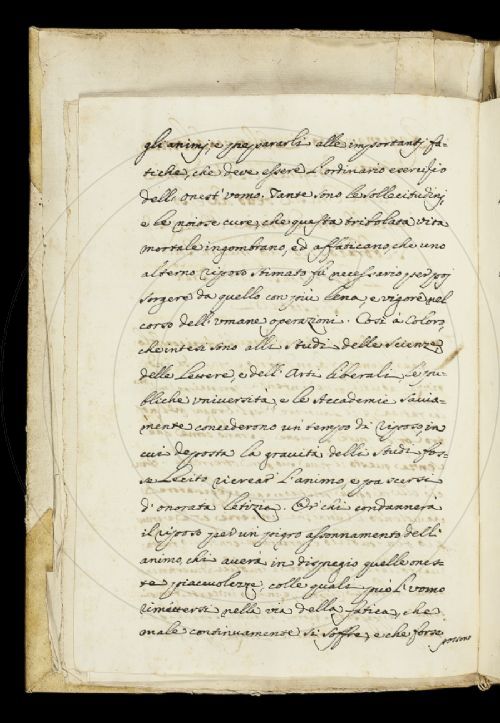 gli animi, e prepararli alle importanti fa-
tiche, che deve essere l'ordinario esercizio
dell'onest'uomo. Tante sono le sollecitudini,
e le noiose cure, che questa tribolata vita
mortale ingombrano, ed affaticano, che uno
alterno riposo stimato fù necessario per poi
sorgere da quello con più lena, e vigore nel
corso dell'umane operazioni. Così à coloro,
che intesi sono alli studi delle scienze,
delle Lettere, e dell'Arti liberali le pu-
bliche università, e le Accademie savia-
mente concederono un tempo di riposo, in
cui deposta la gravità delli studi fos-
se lecito ricrear l'animo, e pascersi
d'onorata letizia. Or chi condannerà
il riposo per un pigro assonnamento dell'
animo, chi averà in dispregio quelle ones-
te piacevolezze, colle quali può l'uomo
rimettersi nella via della fatica, che
male continuamente si soffre, e che forse